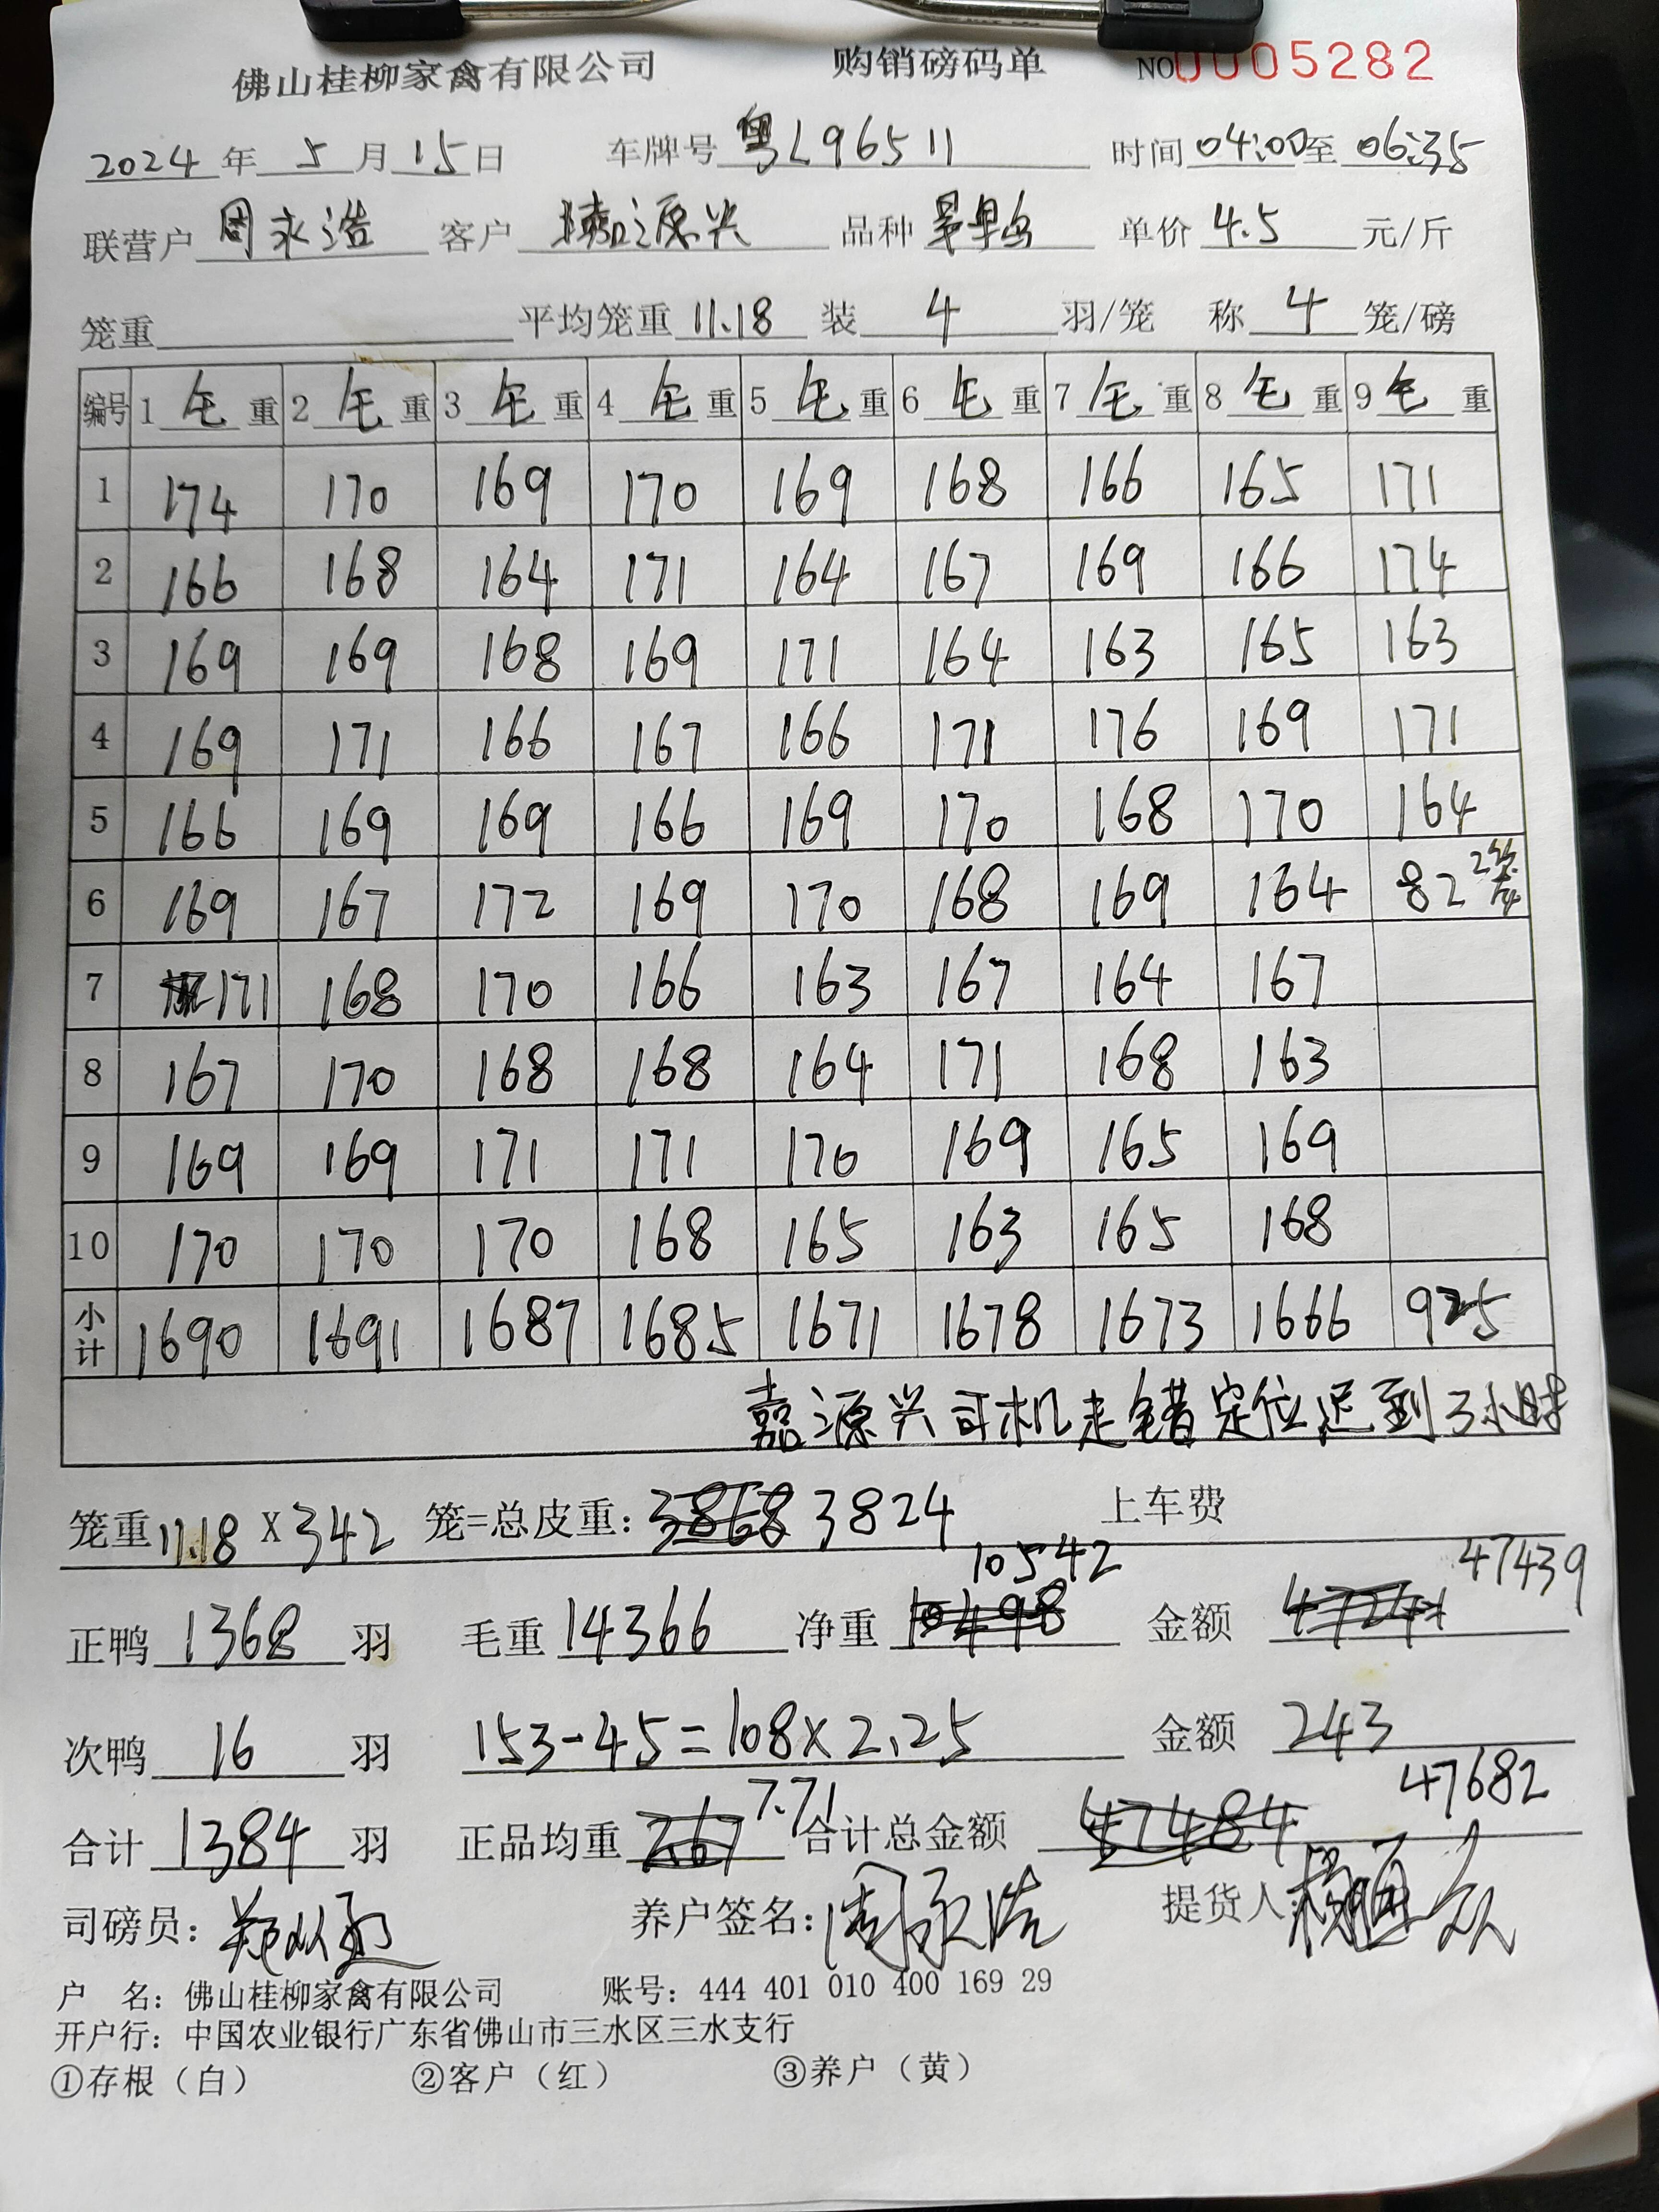 佛山桂柳家禽有限公司 购销磅码单 NO0005282
2024 年 5 月 15 日 车牌号 粤L96511 时间 04:00 至 06:35
联营户 周永浩 客户 嘉源兴 品种 单价 4.5 元/斤
笼重 平均笼重 11.18 装 4 羽/笼 称 4 笼/磅
编号 1 毛 重 2 毛 重 3 毛 重 4 毛 重 5 毛 重 6 毛 重 7 毛 重 8 毛 重 9 毛 重
1 174 170 169 170 169 168 166 165 171
2 166 168 164 171 164 167 169 166 174
3 169 169 168 169 171 164 163 165 163
4 169 171 166 167 166 171 176 169 171
5 166 169 169 166 169 170 168 170 164
6 169 167 172 169 170 168 169 164 82 2笼
7 171 168 170 166 163 167 164 167
8 167 170 168 168 164 171 168 163
9 169 169 171 171 170 169 165 169
10 170 170 170 168 165 163 165 168
小计 1690 1691 1687 1685 1671 1678 1673 1666 925
嘉源兴司机走错定位迟到3小时
笼重 11.18 X 342 笼=总皮重: 3868 3824 上车费
10542 47439
正鸭 1368 羽 毛重 14366 净重 10498 金额 47241
次鸭 16 羽 153-45=108×2.25 金额 243
7.71 47682
合计 1384 羽 正品均重 7.67 合计总金额 47484
司磅员: 养户签名: 周永浩 提货人:
户 名: 佛山桂柳家禽有限公司 账号: 444 401 010 400 169 29
开户行: 中国农业银行广东省佛山市三水区三水支行
①存根（白） ②客户（红） ③养户（黄）